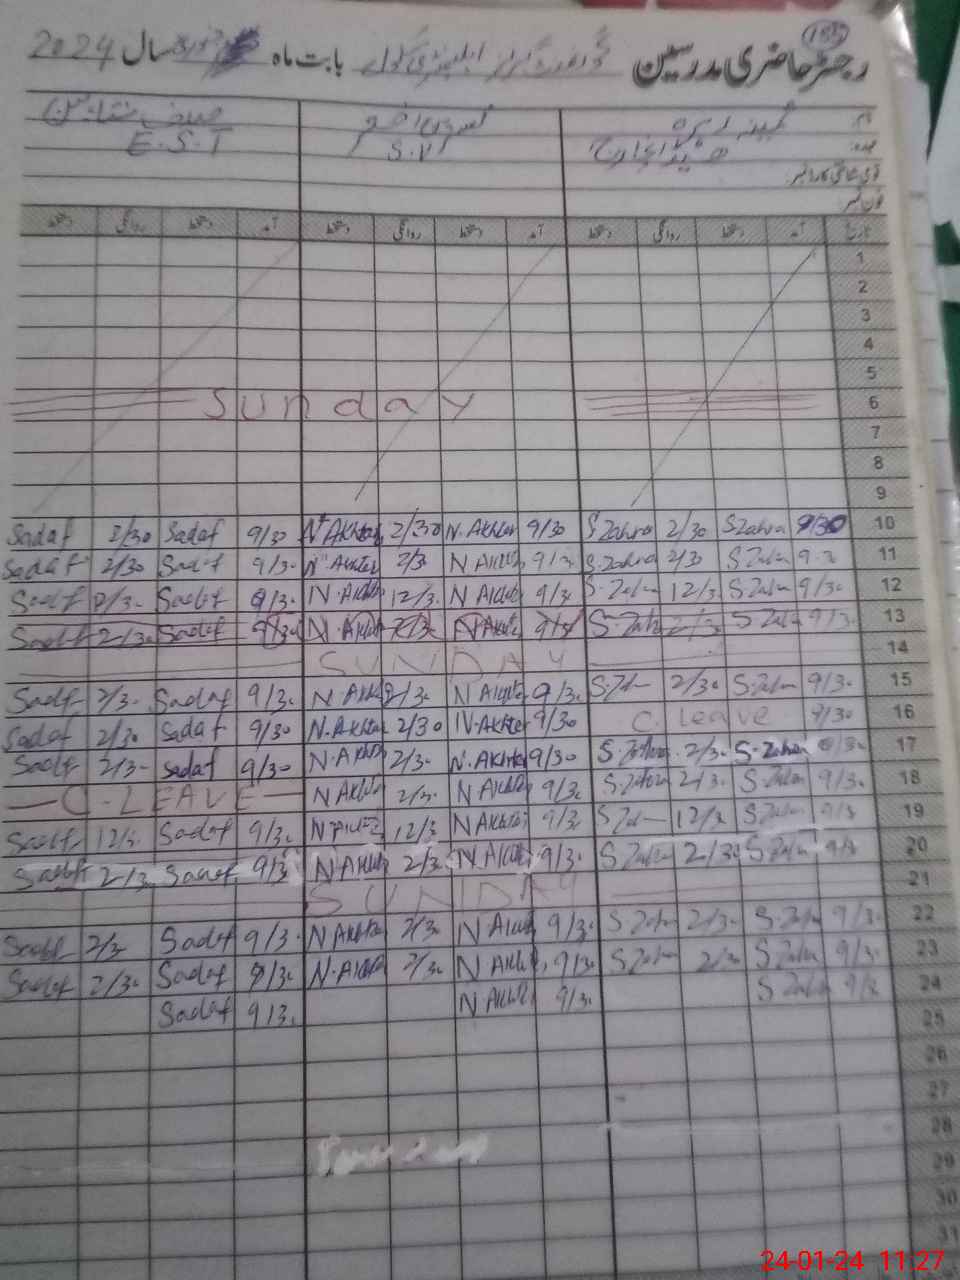 رجسٹر حاضری مدرسین بابت ماہ سال 2024
155
نام
عہدہ S.V E.S.T
قومی شناختی کارڈ نمبر
فون نمبر
تاریخ آمد دستخط روانگی دستخط آمد دستخط روانگی دستخط آمد دستخط روانگی دستخط
1
2
3
4
5
Sunday 6
7
8
9
Sadaf 2/30 Sadaf 9/30 N.Akhter 2/30 N.Akhter 9/30 S.Zahra 2/30 S.Zahra 9/30 10
Sadaf 2/30 Sadaf 9/30 N.Akhter 2/3 N Akhter 9/3 S.Zahra 2/3 S Zahra 9.3 11
Sadaf 2/3 Sadaf 9/30 N.Akhter 12/3 N Akhter 9/30 S.Zahra 12/3 S Zahra 9/30 12
Sadaf 2/30 Sadaf 9/30 N.Akhter 2/30 N Akhter S-Zahra 2/3 S Zahra 9/30 13
SUNDAY 14
Sadaf 2/30 Sadaf 9/30 N.Akhter 2/30 N Akhter 9/30 S.Zahra 2/30 S.Zahra 9/30 15
Sadaf 2/30 Sadaf 9/30 N.Akhter 2/30 N.Akhter 9/30 C. Leave 9/30 16
Sadaf 2/30 Sadaf 9/30 N.Akhter 2/30 N.Akhter 9/30 S.Zahra 2/30 S.Zahra 9/30 17
C-LEAVE N Akhter 2/30 N Akhter 9/30 S.Zahra 2/3 S.Zahra 9/30 18
Sadaf 12/3 Sadaf 9/30 N.Akhter 12/3 N Akhter 9/30 S Zahra 12/30 S Zahra 9/3 19
Sadaf 2/3 Sadaf 9/3 N Akhter 2/3 N Akhter 9/30 S Zahra 2/30 S Zahra 9/3 20
SUNDAY 21
Sadaf 2/3 Sadaf 9/30 N Akhter 2/3 N Akhter 9/30 S.Zahra 2/30 S.Zahra 9/30 22
Sadaf 2/30 Sadaf 9/30 N.Akhter 2/30 N Akhter 9/30 S Zahra 2/30 S Zahra 9/30 23
Sadaf 9/30 N Akhter 9/30 S Zahra 9/30 24
25
26
27
28
29
30
31
24-01-24 11:27